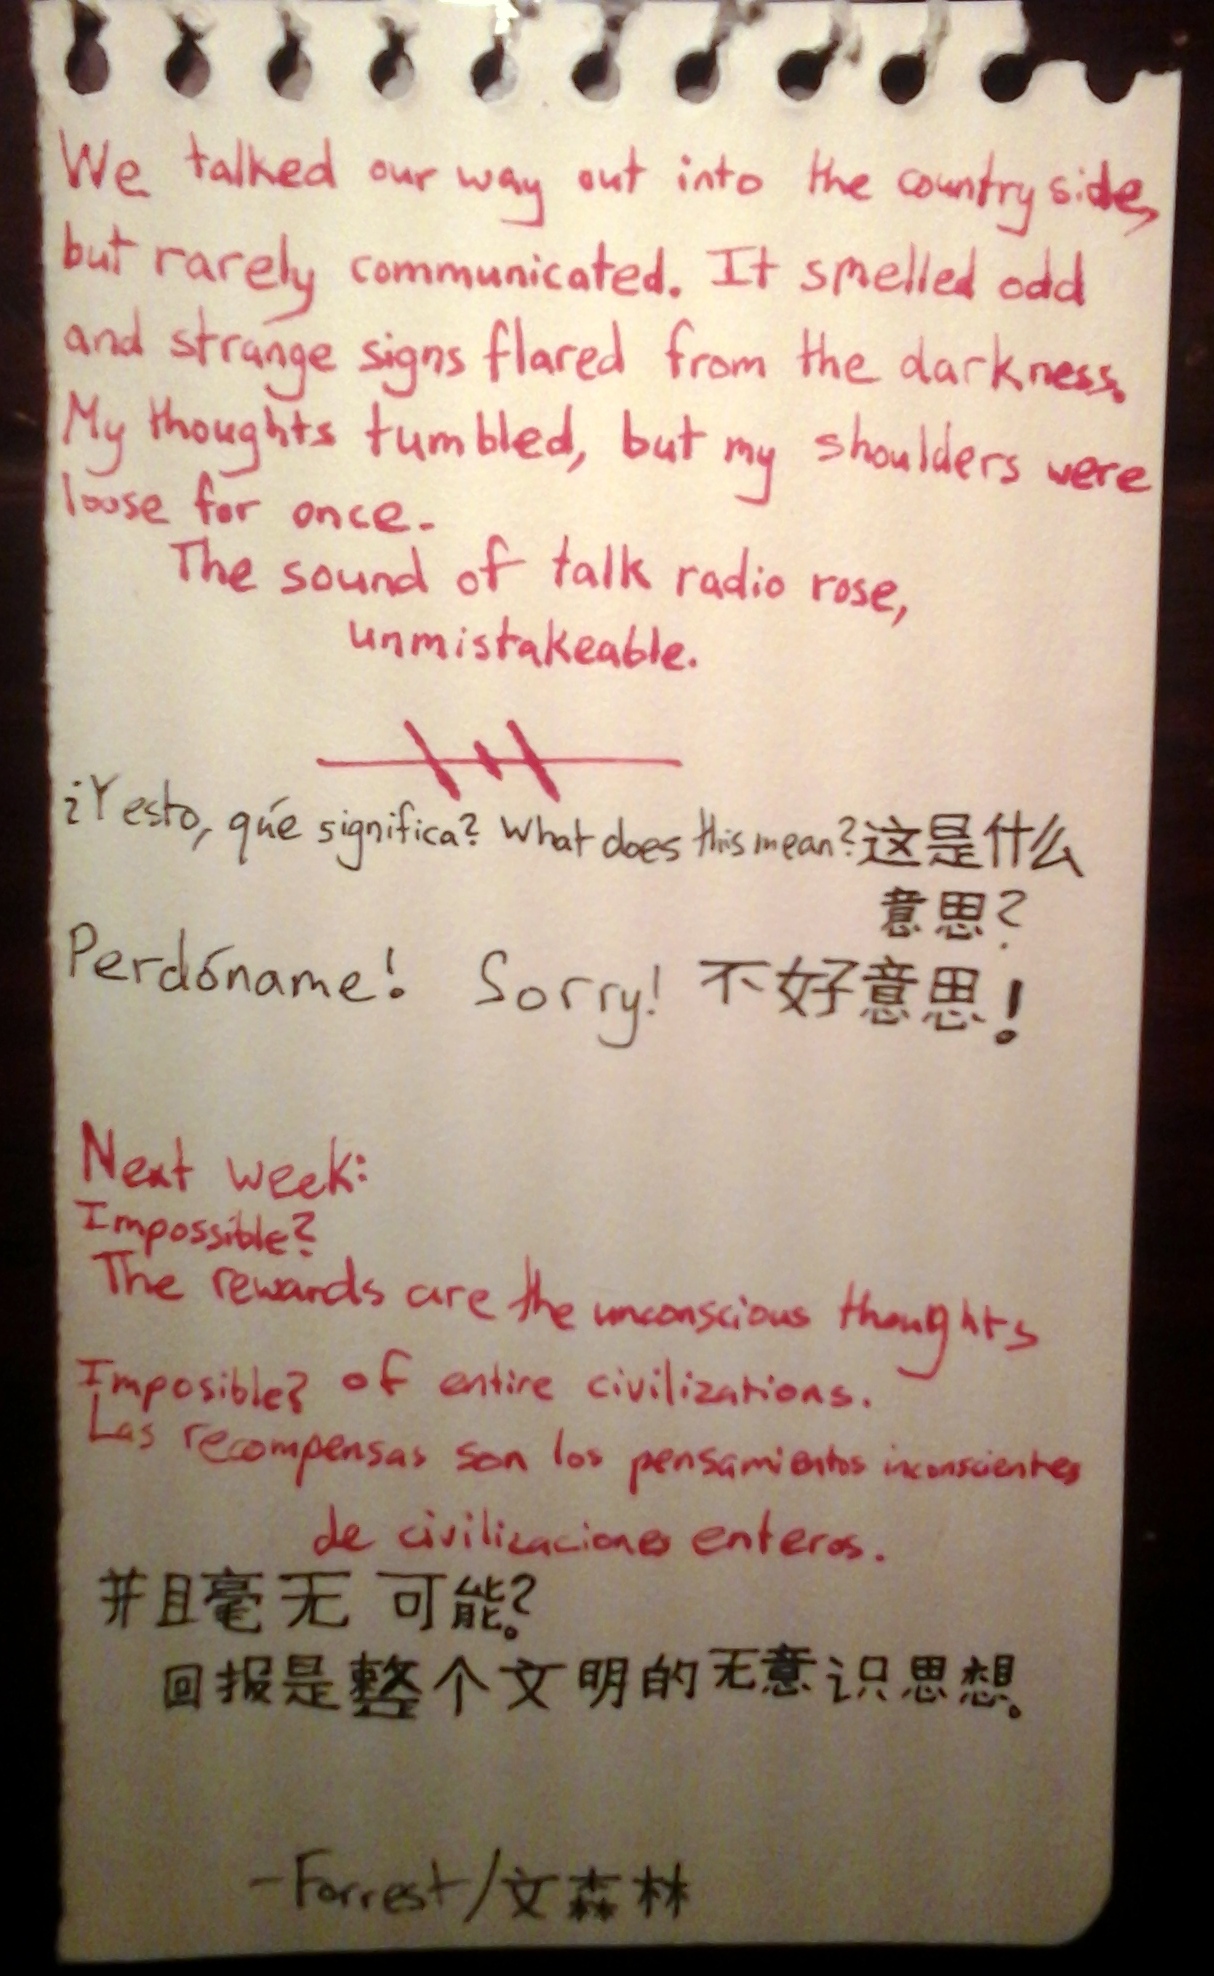 We talked our way out into the countryside,
but rarely communicated. It smelled odd
and strange signs flared from the darkness.
My thoughts tumbled, but my shoulders were
loose for once.
The sound of talk radio rose,
unmistakeable.
¿Y esto, qúe significa? What does this mean? 这是什么
意思?
Perdóname! Sorry! 不好意思!
Next week:
Impossible?
The rewards are the unconscious thoughts
of entire civilizations.
Imposible?
Las recompensas son los pensamientos inconscientes
de civilizaciones enteros.
并且毫无可能?
回报是整个文明的无意识思想。
-Forrest/文森林